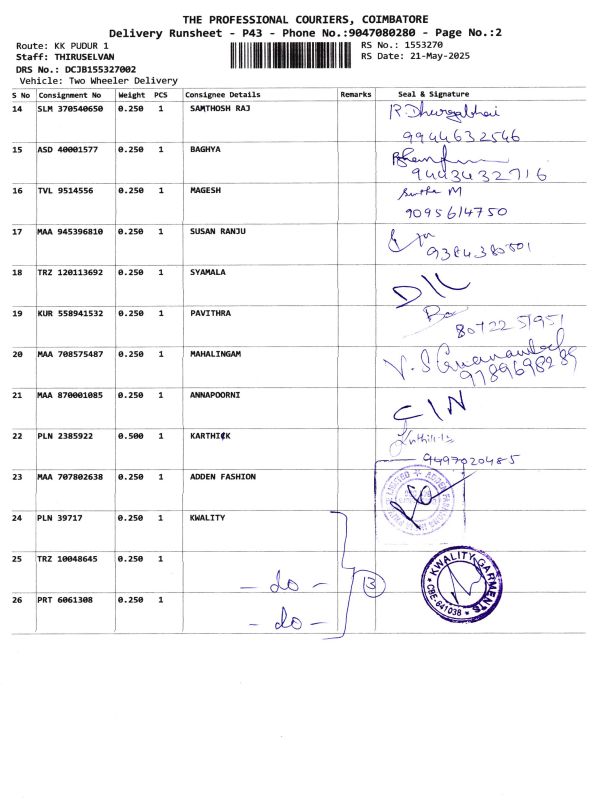 THE PROFESSIONAL COURIERS, COIMBATORE
Delivery Runsheet - P43 - Phone No.:9047080280 - Page No.:2
Route: KK PUDUR 1
RS No.: 1553270
Staff: THIRUSELVAN
RS Date: 21-May-2025
DRS No.: DCJB155327002
Vehicle: Two Wheeler Delivery
S No Consignment No Weight PCS Consignee Details Remarks Seal & Signature
14 SLM 370540650 0.250 1 SAMTHOSH RAJ
9944632546
15 ASD 40001577 0.250 1 BAGHYA
9443432716
16 TVL 9514556 0.250 1 MAGESH
9095614750
17 MAA 945396810 0.250 1 SUSAN RANJU
18 TRZ 120113692 0.250 1 SYAMALA
D/L
19 KUR 558941532 0.250 1 PAVITHRA
8072251951
20 MAA 708575487 0.250 1 MAHALINGAM
9789698289
21 MAA 870001085 0.250 1 ANNAPOORNI
C/N
22 PLN 2385922 0.500 1 KARTHICK
9497020485
23 MAA 707802638 0.250 1 ADDEN FASHION
24 PLN 39717 0.250 1 KWALITY
25 TRZ 10048645 0.250 1
- do -
3
KWALITY GARMENTS
* CBE-641038 *
26 PRT 6061308 0.250 1
- do -